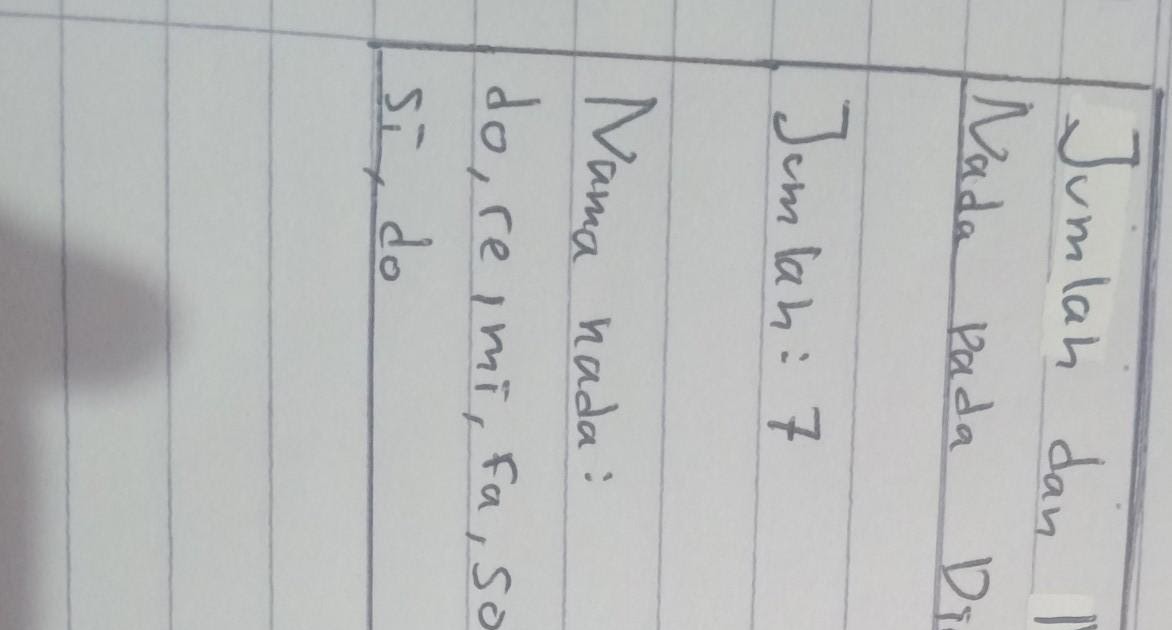 Jumlah dan
Nada pada
Jumlah: 7
Nama nada:
do, re, mi, fa, so
si, do